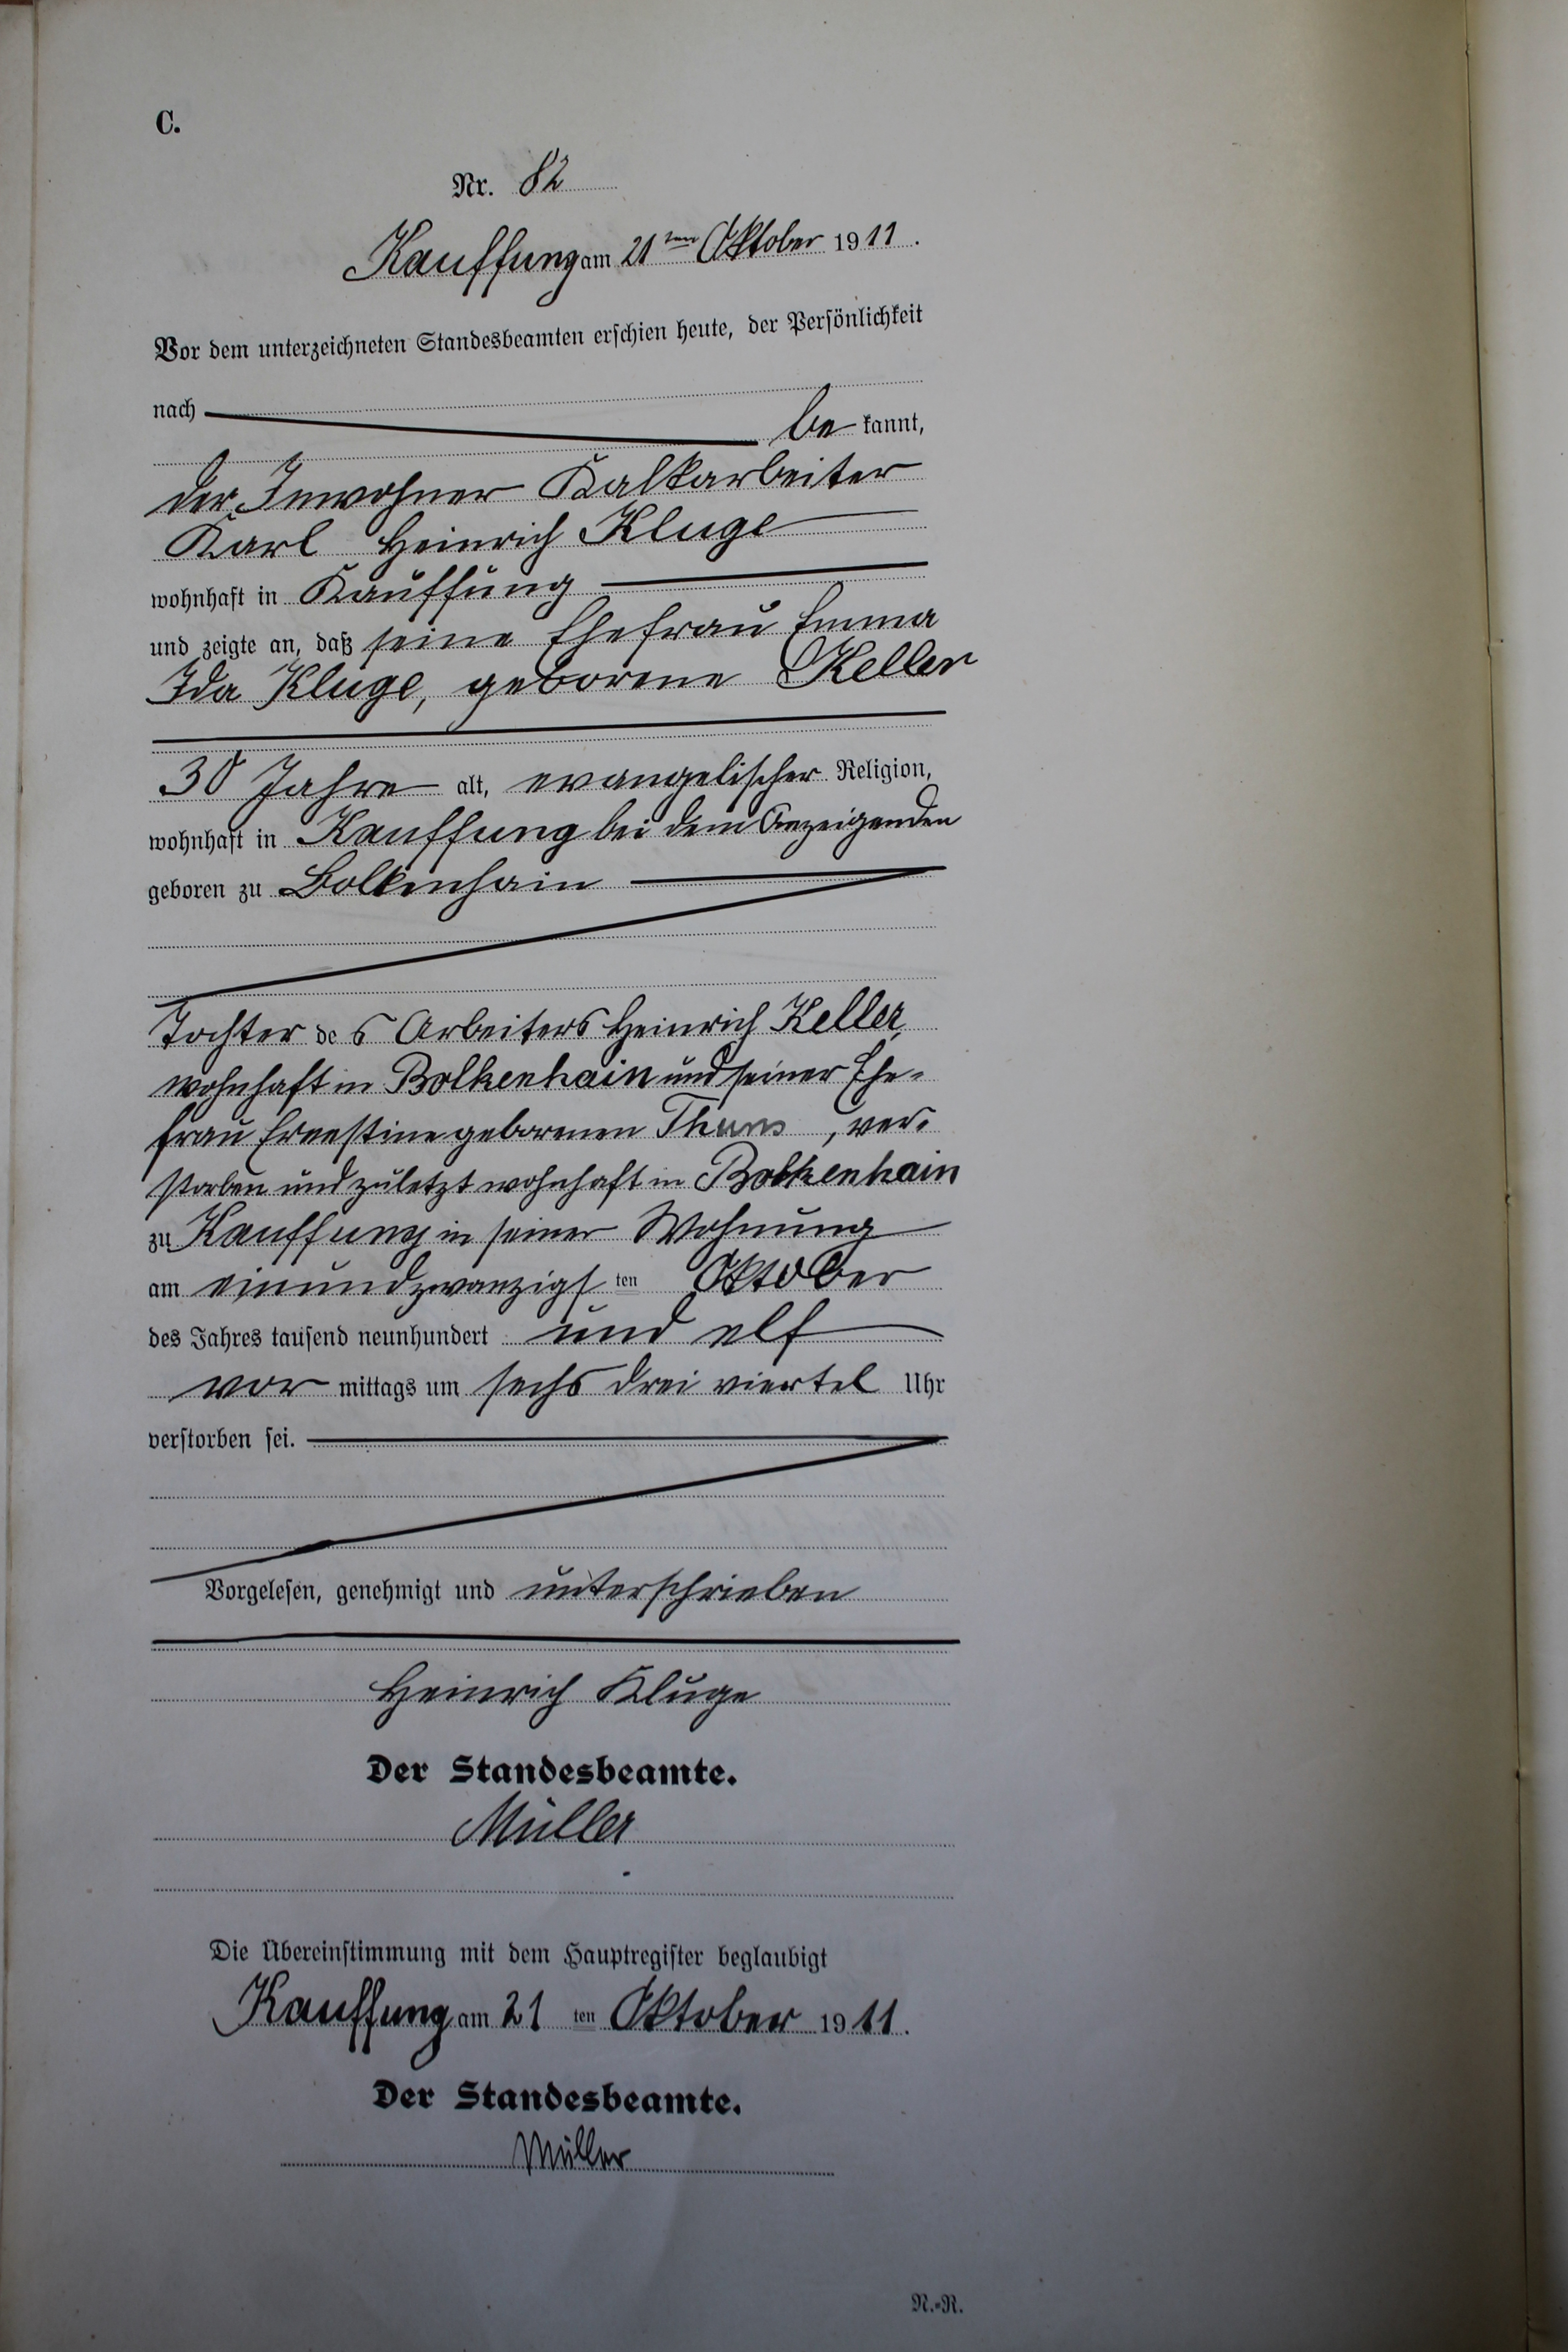 C.
Nr. 82
Kauffung am 21ten Oktober 1911.
Vor dem unterzeichneten Standesbeamten erschien heute, der Persönlichkeit
nach
be kannt,
der Inwohner Kalkarbeiter
Karl Heinrich Kluge
wohnhaft in Kauffung
und zeigte an, daß seine Ehefrau Emma
Ida Kluge, geborene Keller
30 Jahre alt, evangelischer Religion,
wohnhaft in Kauffung bei dem Anzeigenden
geboren zu Bolkenhain
Tochter des Arbeiters Heinrich Keller,
wohnhaft in Bolkenhain und seiner Ehe-
frau Ernestine geborenen Thuns, ver-
storben und zuletzt wohnhaft in Bolkenhain
zu Kauffung in seiner Wohnung
am einundzwanzigsten Oktober
des Jahres tausend neunhundert und elf
vor mittags um sechs drei viertel Uhr
verstorben sei.
Vorgelesen, genehmigt und unterschrieben
Heinrich Kluge
Der Standesbeamte.
Müller
Die Übereinstimmung mit dem Hauptregister beglaubigt
Kauffung am 21 ten Oktober 1911.
Der Standesbeamte.
Müller
N.-R.